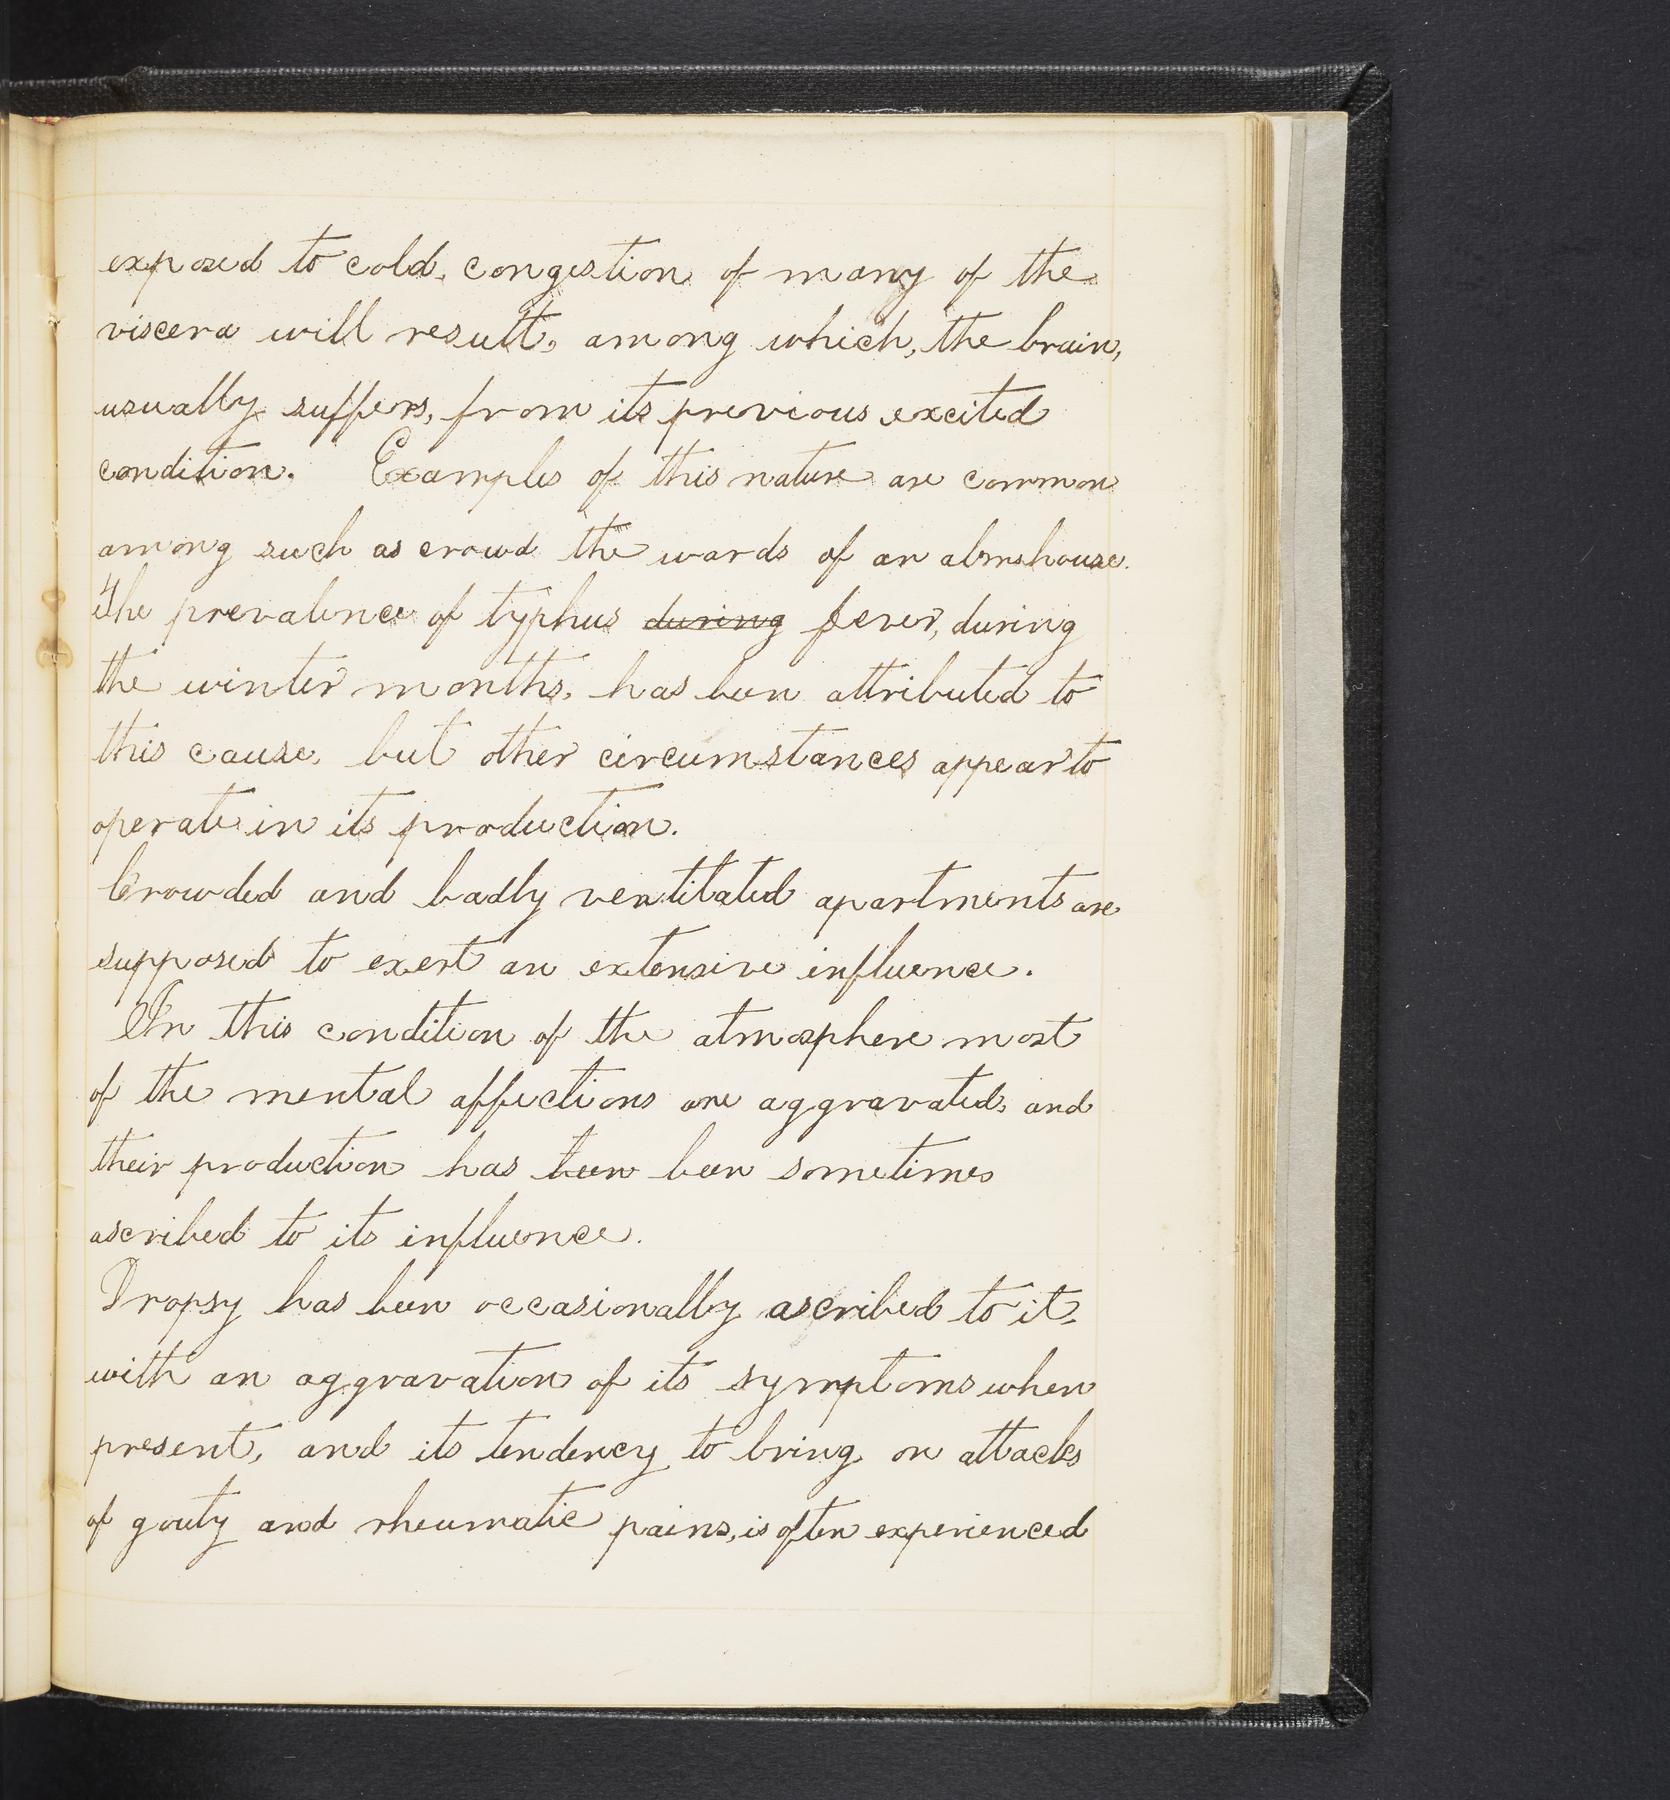 exposed to cold, congestion of many of the
viscera will result, among which, the brain,
usually suffers, from its previous excited
condition. Examples of this nature are common
among such as crowd the wards of an almshouse.
The prevalence of typhus during fever, during
the winter months, has been attributed to
this cause, but other circumstances appear to
operate in its production.
Crowded and badly ventilated apartments are
supposed to exert an extensive influence.
In this condition of the atmosphere most
of the mental affections are aggravated, and
their production has been been sometimes
ascribed to its influence.
Dropsy has been occasionally ascribed to it,
with an aggravation of its symptoms when
present, and its tendency to bring on attacks
of gouty and rheumatic pains, is often experienced